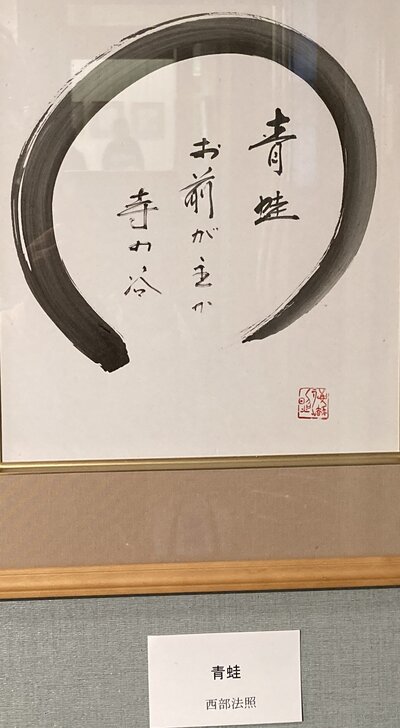 青蛙
お前が主か
寺の冷
青蛙
西部法照